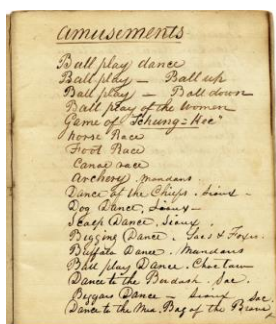 amusements
Ball play dance
Ball-play — Ball up
Ball play — Ball down
Ball play of the Women
Game of "Tchung=Kee"
Horse Race
Foot Race
Canoe race
Archery, Mandans
Dance of the Chiefs, Sioux —
Dog Dance, Sioux —
Scalp Dance, Sioux
Begging Dance. Sac's & Foxes.
Buffalo Dance. Mandans
Ball play Dance. Choctaw
Dance to the Berdash. Sac.
Beggars Dance — Sioux Sac.
Dance to the Med. Bag of the Brave,